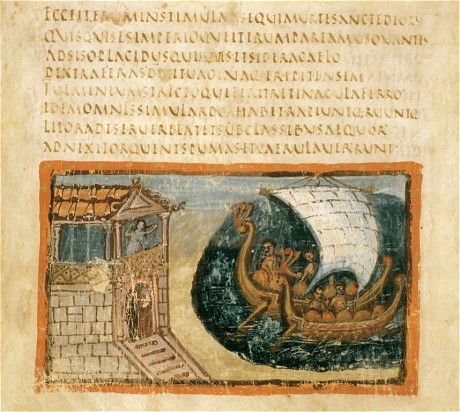 ECCEITERUMINSTIMULATSEQUIMURTESANCTEDEORU
QUISQUISESIMPERIOQUEITERUMPAREAMUSOVANTIS
ADSISOPLACIDUSQUEIUVESETSIDERACAELO
DEXTRAFERASDIXITVAGINAQ·ERIPITENSEM
FULMINEUMSTRICTOQUEFERITRETINACULAFERRO
IDEMOMNISSIMULARDORHABETRAPIUNTQ·RUUNTQ·
LITORADESERUERELATETSUBCLASSIBUSAEQUOR
ADNIXITORQUENTSPUMASETCAERULAVERRUNT